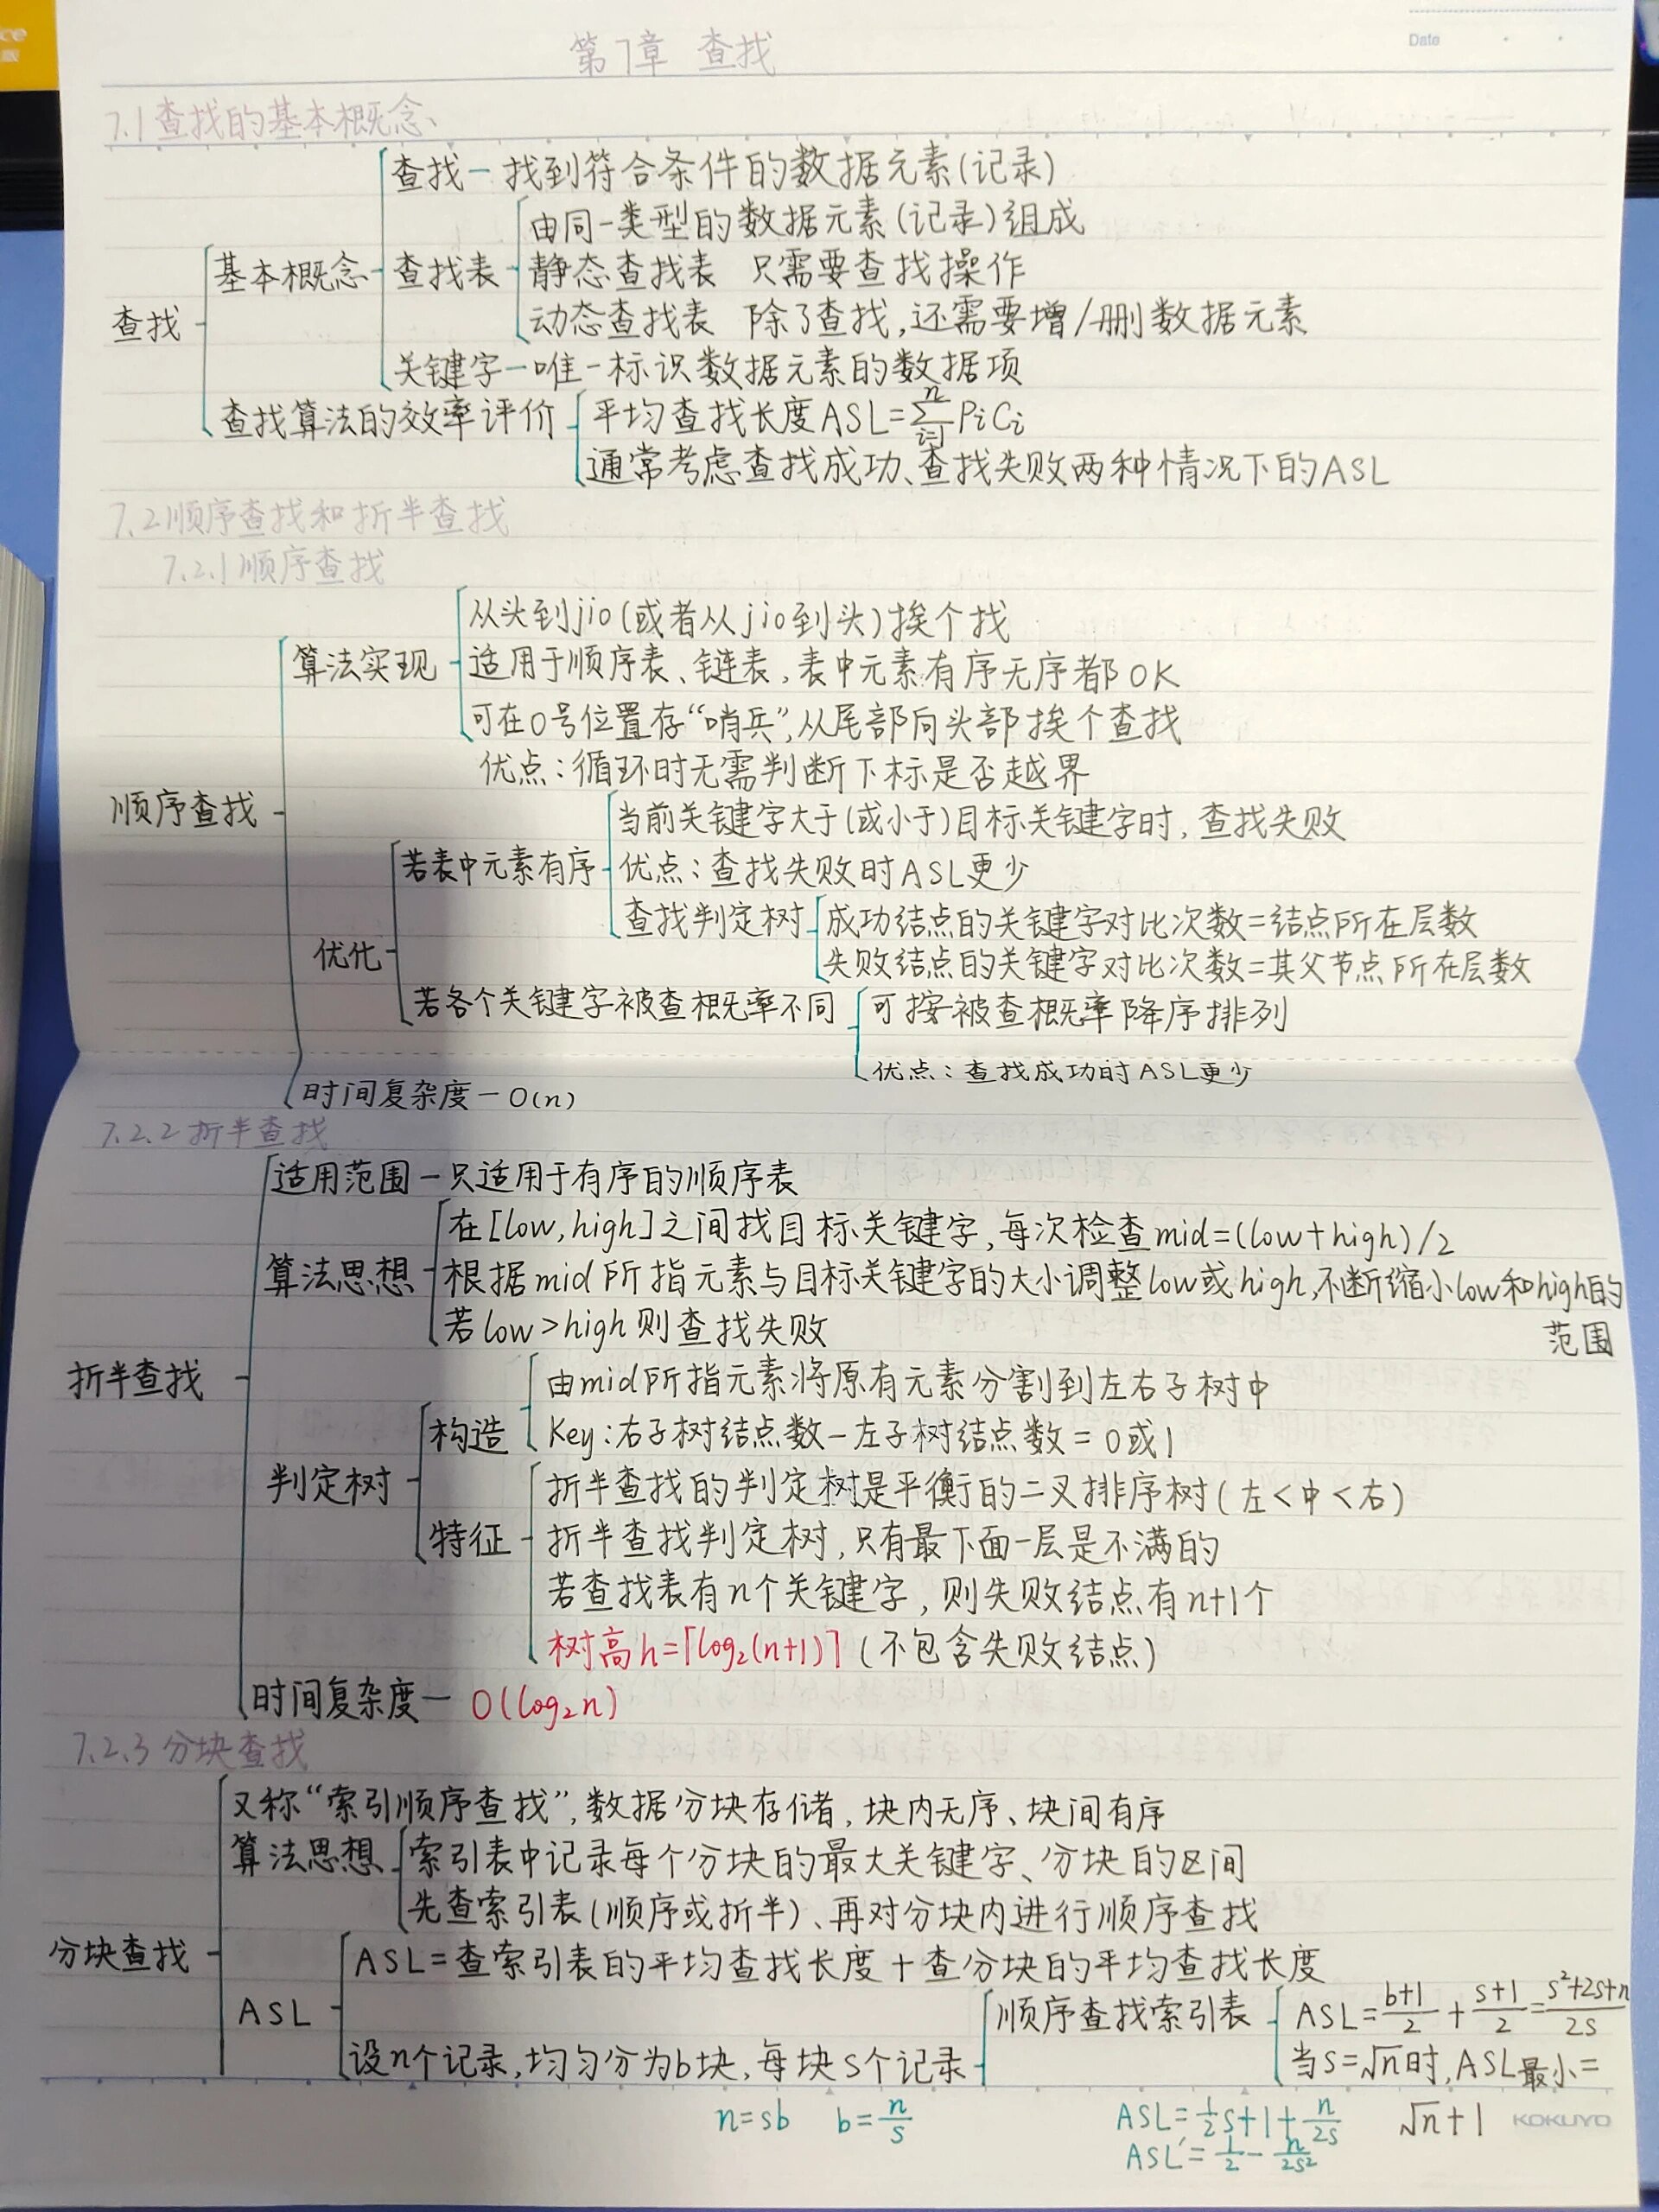 ce
第7章 查找
Date
7.1 查找的基本概念、
查找－找到符合条件的数据元素(记录)
由同一类型的数据元素(记录)组成
基本概念 查找表 静态查找表 只需要查找操作
查找
动态查找表 除了查找,还需要增/删数据元素
关键字－唯一标识数据元素的数据项
查找算法的效率评价 平均查找长度ASL=∑ⁿᵢ₌₁PiCi
通常考虑查找成功、查找失败两种情况下的ASL
7.2顺序查找和折半查找
7.2.1顺序查找
从头到jio(或者从jio到头)挨个找
算法实现 适用于顺序表、链表,表中元素有序无序都OK
可在0号位置存“哨兵”,从尾部向头部挨个查找
优点:循环时无需判断下标是否越界
顺序查找
当前关键字大于(或小于)目标关键字时,查找失败
若表中元素有序 优点:查找失败时ASL更少
查找判定树 成功结点的关键字对比次数=结点所在层数
优化
失败结点的关键字对比次数=其父节点所在层数
若各个关键字被查概率不同 可按被查概率降序排列
优点:查找成功时ASL更少
时间复杂度－O(n)
7.2.2 折半查找
适用范围－只适用于有序的顺序表
在[low,high]之间找目标关键字,每次检查mid=(low+high)/2
算法思想 根据mid所指元素与目标关键字的大小调整low或high,不断缩小low和high的
范围
若low>high则查找失败
折半查找
由mid所指元素将原有元素分割到左右子树中
构造 Key:右子树结点数－左子树结点数=0或1
判定树
折半查找的判定树是平衡的二叉排序树(左<中<右)
特征 折半查找判定树,只有最下面一层是不满的
若查找表有n个关键字,则失败结点有n+1个
树高h=⌈log₂(n+1)⌉(不包含失败结点)
时间复杂度－O(log₂n)
7.2.3 分块查找
又称“索引顺序查找”,数据分块存储,块内无序、块间有序
算法思想 索引表中记录每个分块的最大关键字、分块的区间
先查索引表(顺序或折半)、再对分块内进行顺序查找
分块查找
ASL=查索引表的平均查找长度+查分块的平均查找长度
ASL
顺序查找索引表 ASL=(b+1)/2+(s+1)/2=(s²+2s+n)/2s
设n个记录,均匀分为b块,每块s个记录
当s=√n时,ASL最小=
√n+1
n=sb b=n/s
ASL=½s+1+n/2s
ASL′=½－n/2s²
KOKUYO